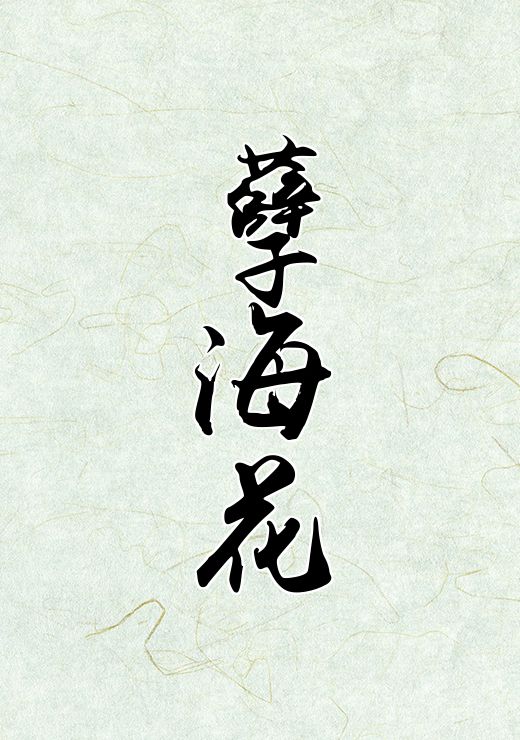 孽海花